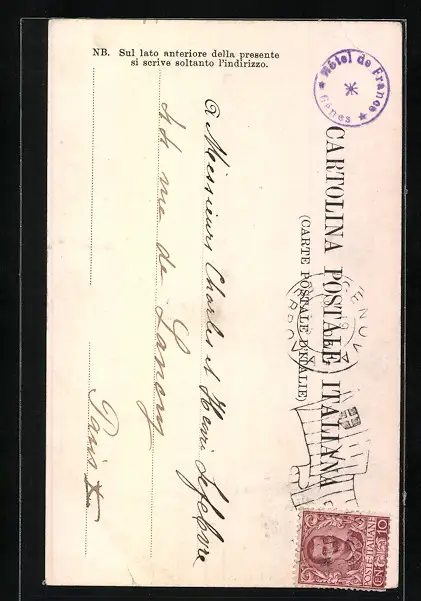 CARTOLINA POSTALE ITALIANA
(CARTE POSTALE D'ITALIE)
Hôtel de France
Gênes
10
a Messieurs Charles et Henri Lefebvre
rue de
Paris X
NB. Sul lato anteriore della presente
si scrive soltanto l'indirizzo.